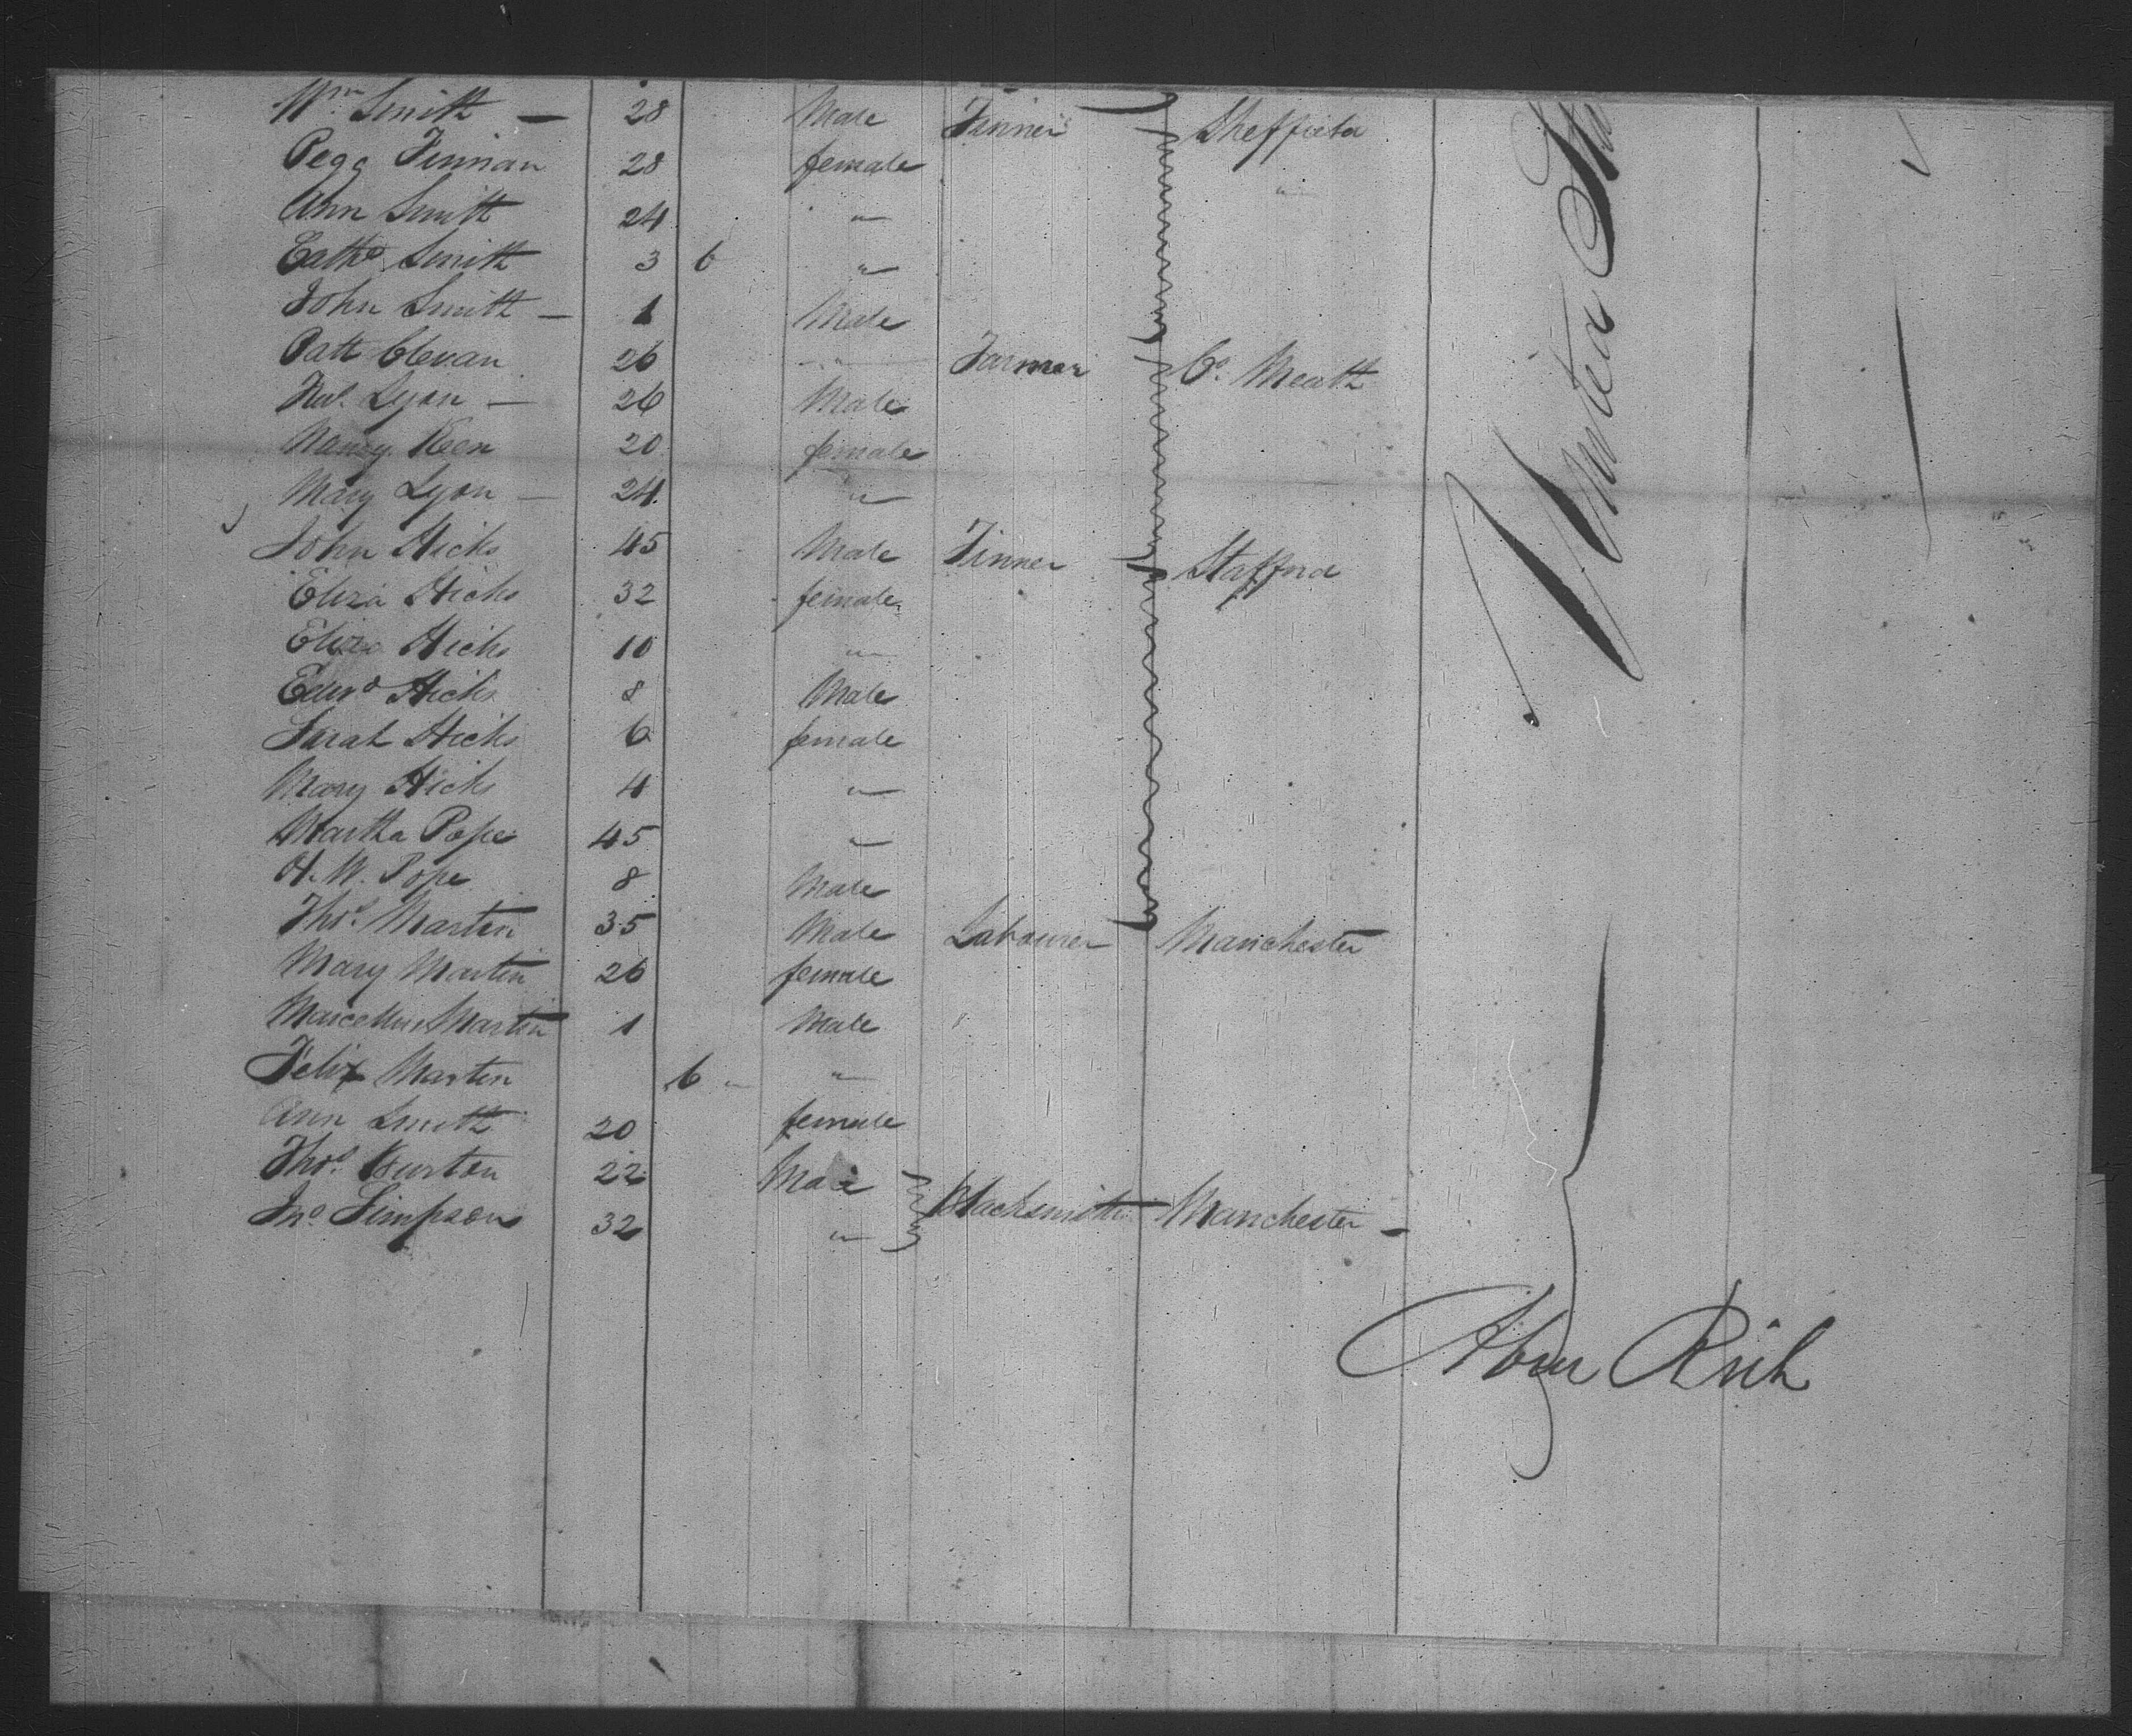 Wm. Smith — 28 Male Tinner Sheffield
Pegg Finnan 28 female "
Ann Smith 24 "
Cathe Smith 3 6 "
John Smith — 1 Male
Patt Clevan 26 " Farmer Co. Meath
Lyon — 26 Male
Nancy Keen 20 female
Mary Lyon — 24 "
John Hicks 45 Male Tinner Stafford
Eliza Hicks 32 female
Eliza Hicks 10 "
Edwd Hicks 8 Male
Sarah Hicks 6 female
Mary Hicks 4 "
Martha Pope 45 "
H. W. Pope 8 Male
Thos. Martin 35 Male Labourer Manchester
Mary Martin 26 female
Marcellus Martin 1 Male
Felix Martin 6 "
Ann Smith 20 female
Thos. Burton 22 Male Blacksmiths Manchester —
Jno. Simpson 32 "
United
Rich